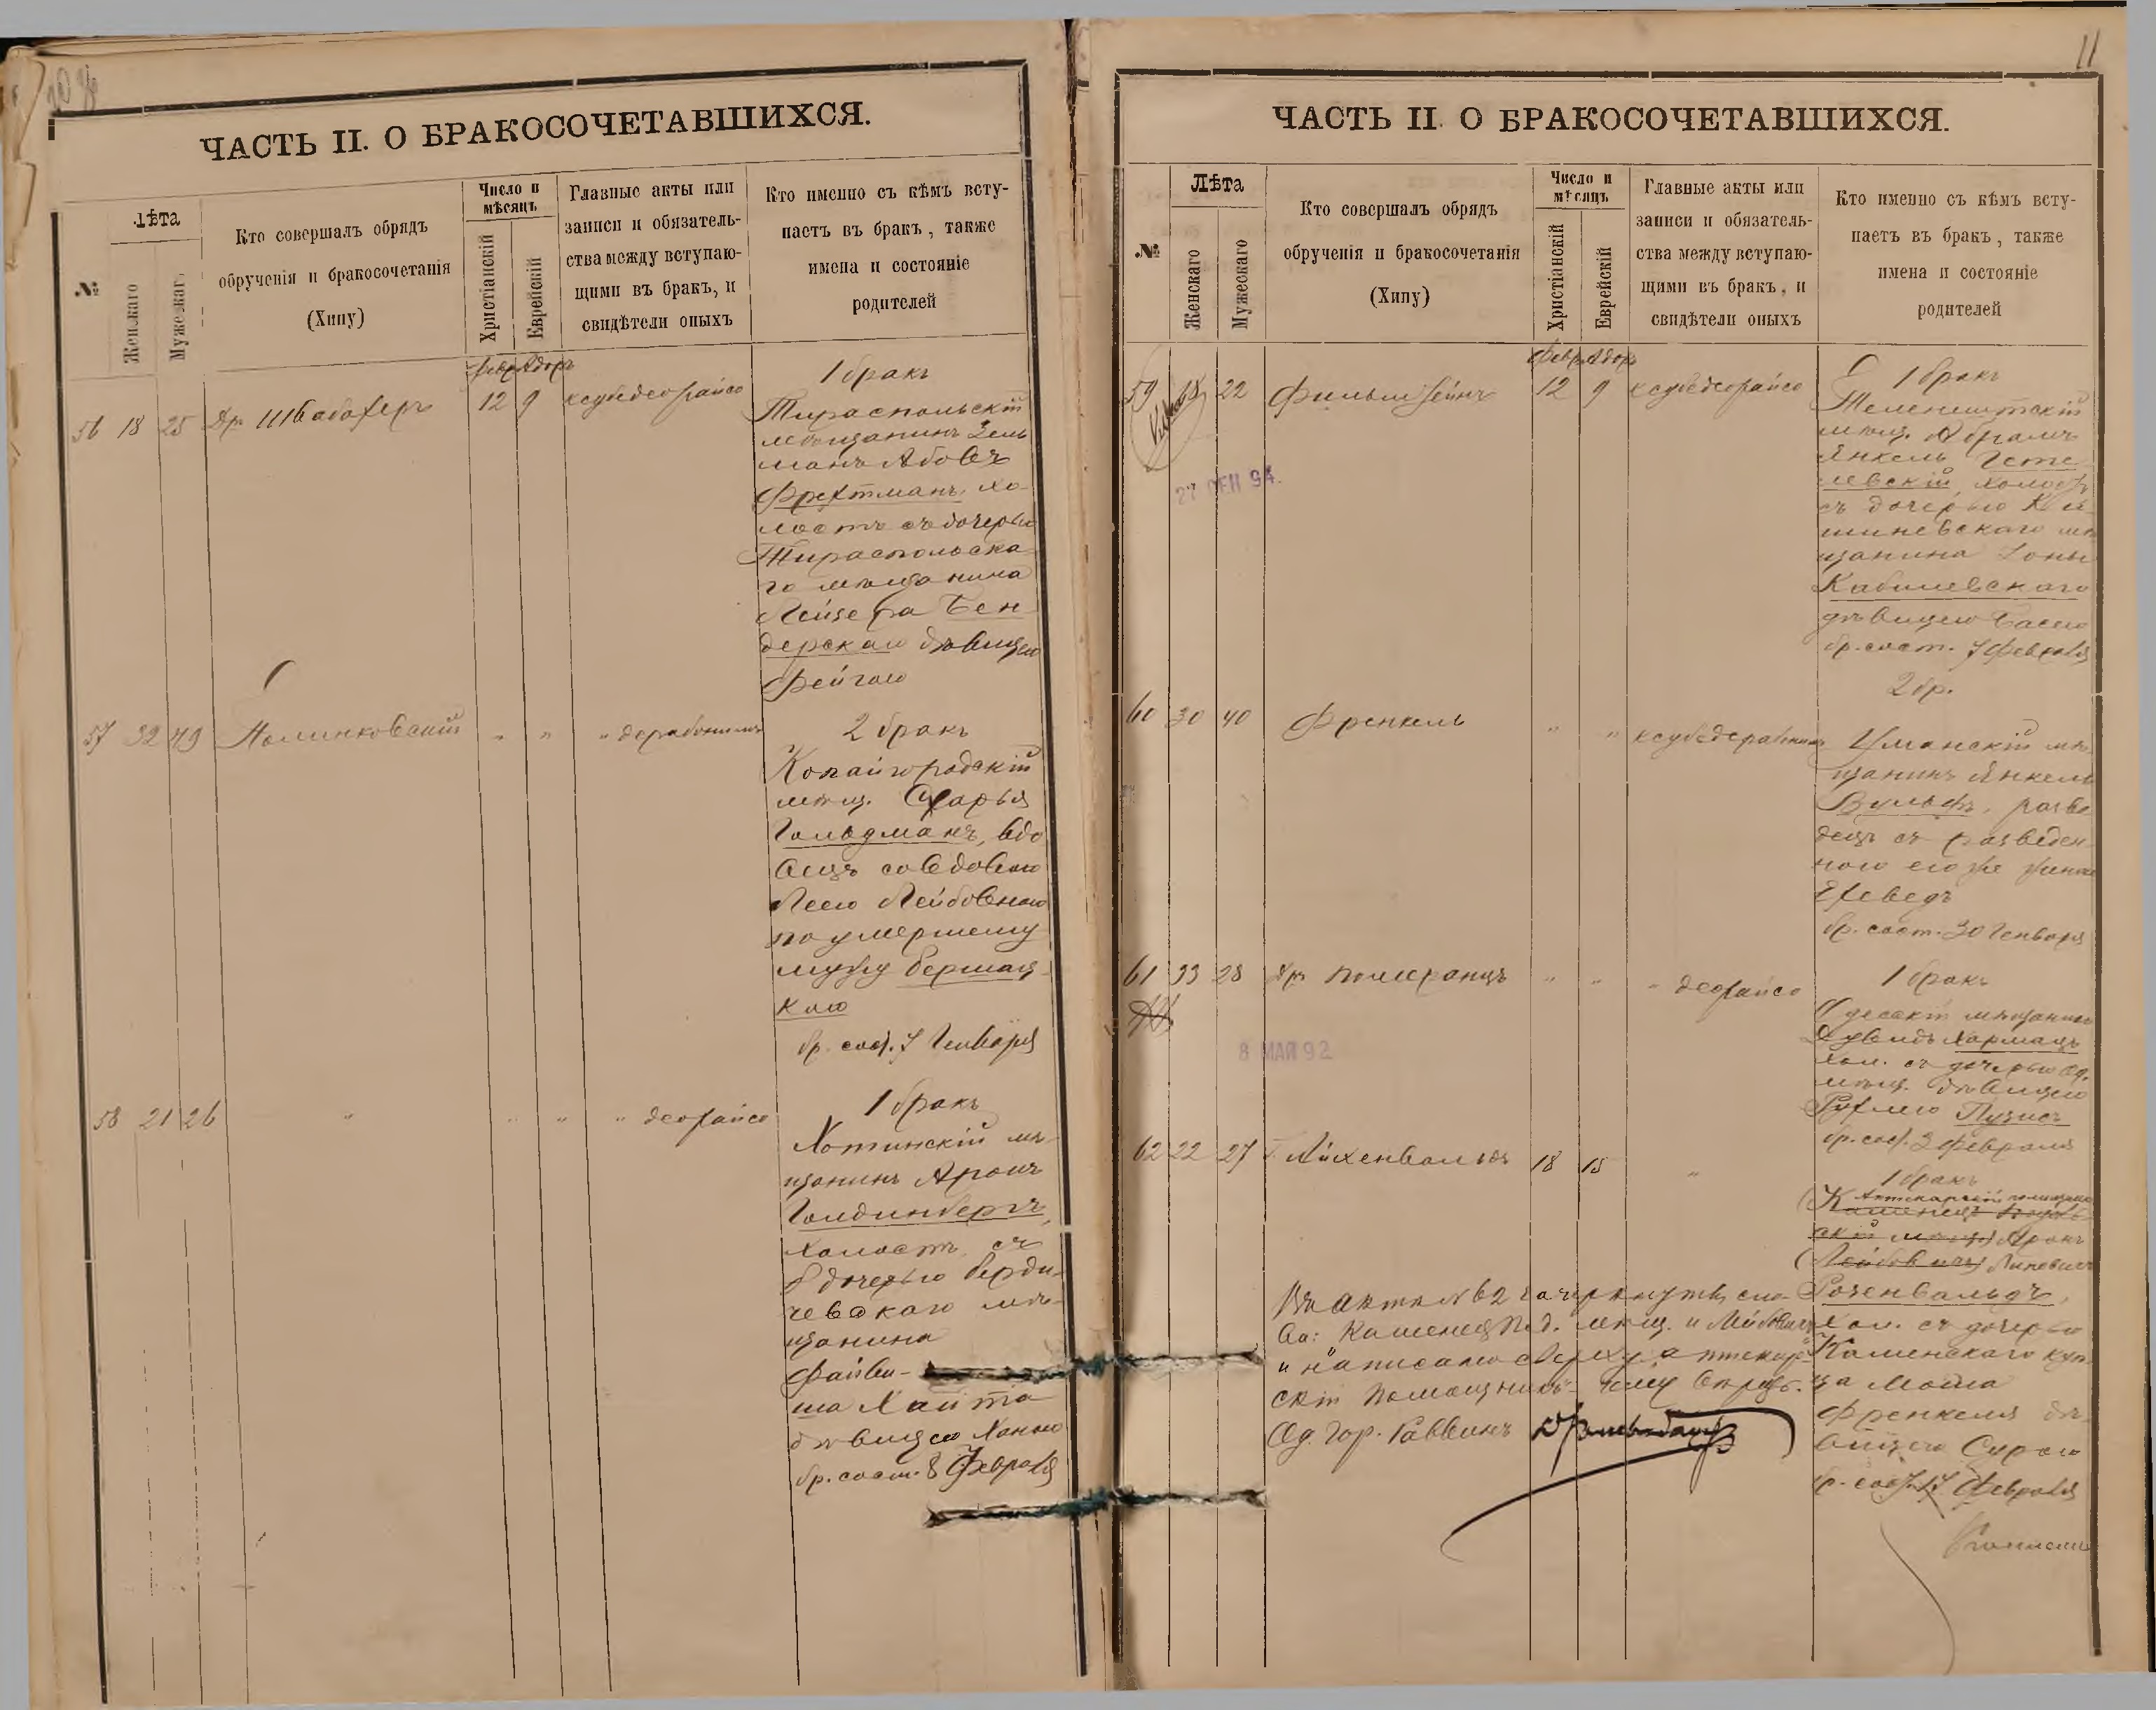 ЧАСТЬ II. О БРАКОСОЧЕТАВШИХСЯ.
№
Лѣта
Женскаго
Мужескаго
Кто совершалъ обрядъ
обрученія и бракосочетанія
(Хипу)
Число и
мѣсяцъ
Христіанскій
Еврейскій
Главные акты или
записи и обязатель-
ства между вступаю-
щими въ бракъ, и
свидѣтели оныхъ
Кто именно съ кѣмъ всту-
паетъ въ бракъ, также
имена и состояніе
родителей
Февр Адоръ
56 18 25 Др. Швабахеръ 12 9 ксубедеорайсо
1 бракъ
Тираспольскій
мѣщанинъ Зель
манъ Абовъ
Фрехтманъ, хо-
лостъ съ дочерью
Тираспольска-
го мѣщанина
Лейзера Бен
дерскаго дѣвицею
Фейгою
57 32 49 Полинковскій " " " дерабонимъ
2 бракъ
Копайгородскій
мѣщ. Схарья
Гольдманъ, вдо
вецъ со вдовою
Леею Лейбовною
по умершему
мужу Бершад
кою
бр. сост. 7 Генваря
58 21 26 " " " " деорайсо
1 бракъ
Хотинскій мѣ-
щанинъ Аронъ
Голдинберъ,
холостъ, съ
дочерью Берди-
чевскаго мѣ-
щанина
Файви-
ша Хаита
дѣвицею Ханою
бр. сост. 8 Февраля
11
ЧАСТЬ II. О БРАКОСОЧЕТАВШИХСЯ.
№
Лѣта
Женскаго
Мужескаго
Кто совершалъ обрядъ
обрученія и бракосочетанія
(Хипу)
Число и
мѣсяцъ
Христіанскій
Еврейскій
Главные акты или
записи и обязатель-
ства между вступаю-
щими въ бракъ, и
свидѣтели оныхъ
Кто именно съ кѣмъ всту-
паетъ въ бракъ, также
имена и состояніе
родителей
Февр Адоръ
59 18 22 Фильштейнъ 12 9 ксубедеорайсо
27 СЕН 94.
1 бракъ
Теленештскій
мѣщ. Абрамъ
Янкель Гете
левскій, холостъ
съ дочерью Ки
шиневскаго мѣ
щанина Іоны
Кабилевскаго
дѣвицею Басею
бр. сост. 7 Февраля
60 30 40 Френкель " " ксубедерабонимъ
2 бр.
Уманскій мѣ
щанинъ Янкель
Вульфъ, разве
децъ съ разведен
ною его же женою
Ехеведъ
бр. сост. 30 Генваря
61 33 28 Др. Померанцъ " " " деорайсо
8 МАЯ 92
1 бракъ
Одесскій мѣщанинъ
Дувидъ Хармацъ
хол. съ дочерью Од.
мѣщ. дѣвицею
Рухлею Пузисъ
бр. сост. 3 Февраля
62 22 27 Айхенвальдъ 18 15 "
1 бракъ
Аптекарскій помощникъ
(Каменецъ Подоль
скій мѣщ.) Аронъ
(Лейбовичъ) Липевичъ
Розенвальдъ,
хол. съ дочерью
Каменскаго куп
ца Мошка
Френкеля дѣ-
вицею Сурою
бр. сост. 17 Февраля
Въ актѣ № 62 зачеркнуты сло
ва: Каменец Под. мѣщ. и Лейбовичъ
и написано сверху аптекар-
скій помощникъ
Од. Гор. Раввинъ